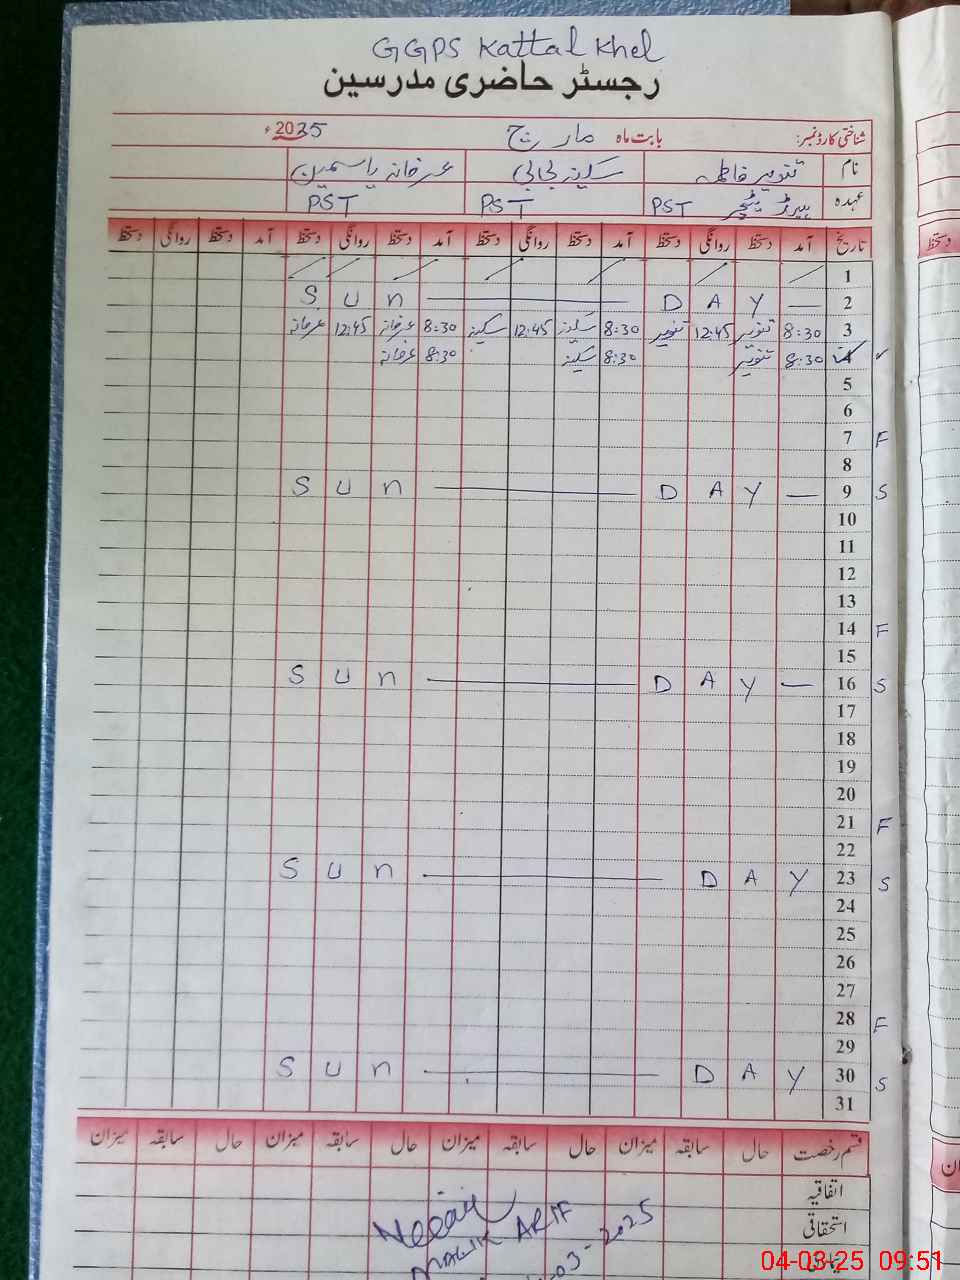 GGPS Kattal Khel
رجسٹر حاضری مدرسین
شناختی کارڈ نمبر: بابت ماہ مارچ 2025ء
نام تنویر فاطمہ سکینہ بی بی عرفانہ یاسمین
عہدہ ہیڈ ٹیچر PST PST PST
تاریخ آمد دستخط روانگی دستخط آمد دستخط روانگی دستخط آمد دستخط روانگی دستخط آمد دستخط روانگی دستخط
1
2 S U n D A Y
3 8:30 تنویر 12:45 تنویر 8:30 سکینہ 12:45 سکینہ 8:30 عرفانہ 12:45 عرفانہ
8:30 تنویر 8:30 سکینہ 8:30 عرفانہ
5
6
7 F
8
9 S U n D A Y S
10
11
12
13
14 F
15
16 S U n D A Y S
17
18
19
20
21 F
22
23 S U n D A Y S
24
25
26
27
28 F
29
30 S U n D A Y S
31
قسم رخصت حال سابقہ میزان حال سابقہ میزان حال سابقہ میزان حال سابقہ میزان
اتفاقیہ
استحقاقی
ARIF
03-2025
04-03-25 09:51